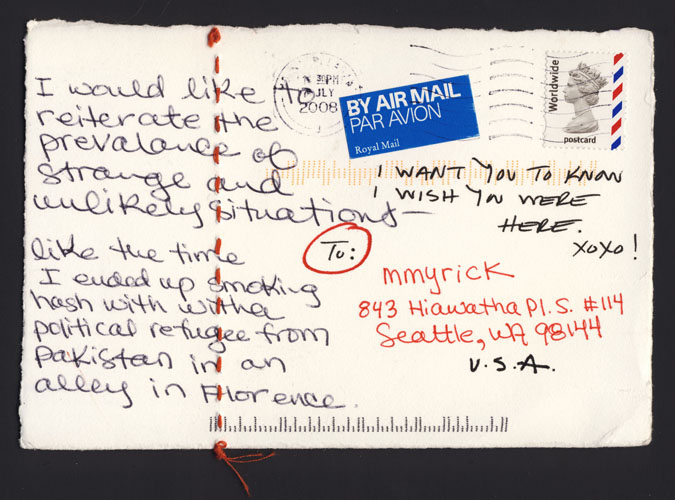 I would like to
reiterate the
prevalance of
strange and
unlikely situations—
like the time
I ended up smoking
hash with with a
political refugee from
Pakistan in an
alley in Florence.
PM
JULY
2008
BY AIR MAIL
PAR AVION
Royal Mail
Worldwide
postcard
I WANT YOU TO KNOW
I WISH YOU WERE
HERE.
XOXO!
To:
mmyrick
843 Hiawatha Pl. S. #114
Seattle, WA 98144
U.S.A.